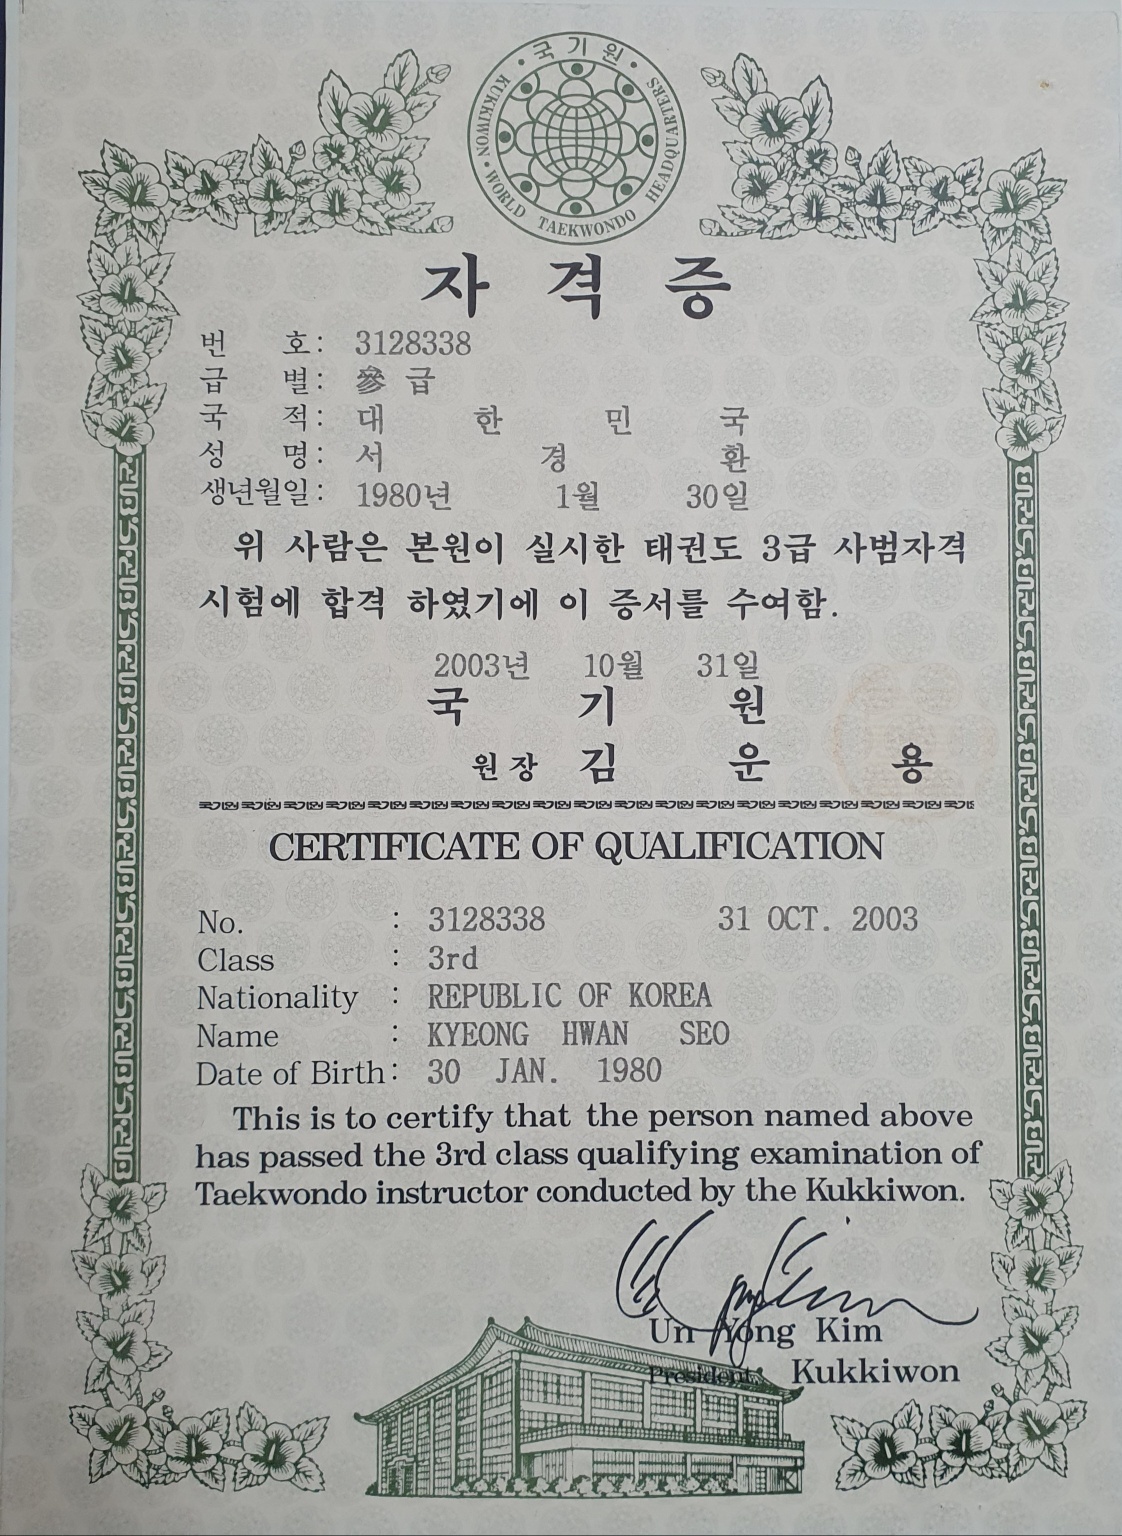 국기원
KUKKIWON · WORLD TAEKWONDO HEADQUARTERS
자 격 증
번 호: 3128338
급 별: 參 급
국 적: 대 한 민 국
성 명: 서 경 환
생년월일: 1980년 1월 30일
위 사람은 본원이 실시한 태권도 3급 사범자격
시험에 합격 하였기에 이 증서를 수여함.
2003년 10월 31일
국 기 원
원장 김 운 용
국기원 국기원 국기원 국기원 국기원 국기원 국기원 국기원 국기원 국기원 국기원 국기원 국기원 국기원 국기원 국기원 국기원 국기원 국기
CERTIFICATE OF QUALIFICATION
No. : 3128338 31 OCT. 2003
Class : 3rd
Nationality : REPUBLIC OF KOREA
Name : KYEONG HWAN SEO
Date of Birth: 30 JAN. 1980
This is to certify that the person named above
has passed the 3rd class qualifying examination of
Taekwondo instructor conducted by the Kukkiwon.
Un Yong Kim
President, Kukkiwon